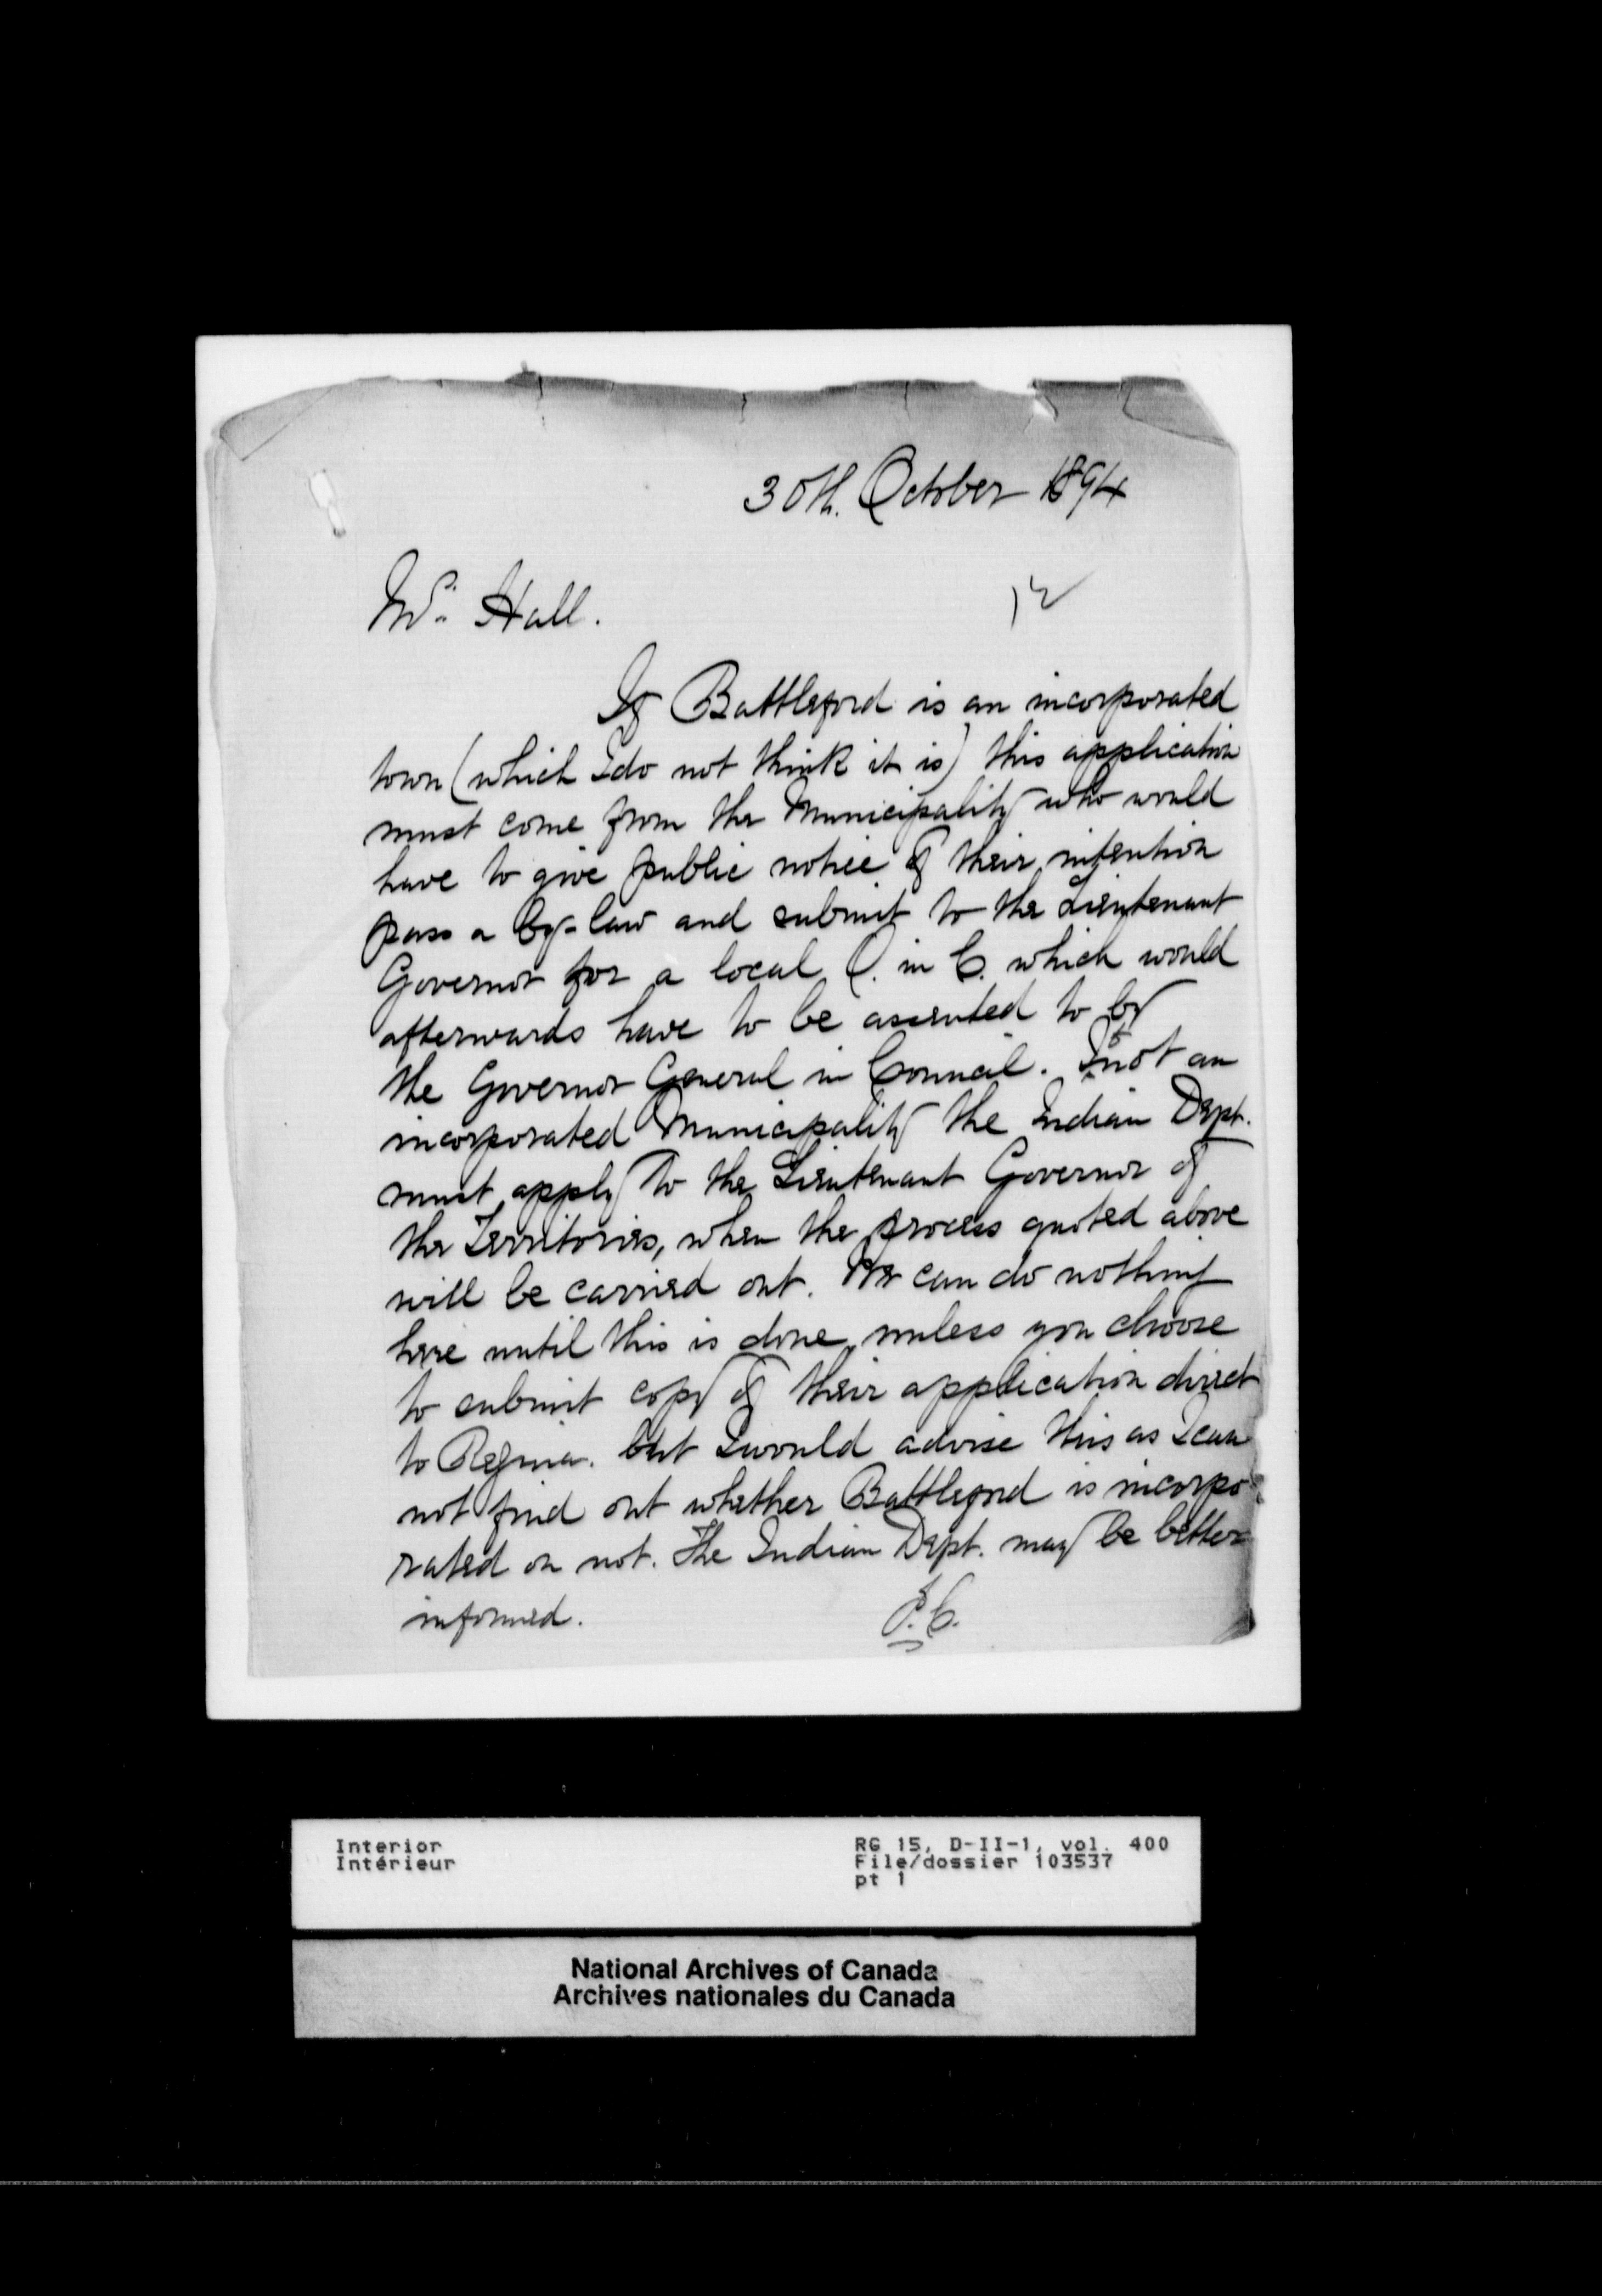 30th. October 1894
12
Mr. Hall.
If Battleford is an incorporated
town (which I do not think it is) this application
must come from the Municipality who would
have to give public notice of their intention
pass a by-law and submit to the Lieutenant
Governor for a local O. in C. which would
afterwards have to be assented to by
the Governor General in Council. If not an
incorporated Municipality the Indian Dept.
must apply to the Lieutenant Governor of
the Territories, when the process quoted above
will be carried out. We can do nothing
here until this is done, unless you choose
to submit copy of their application direct
to Regina. but I would advise this as I can
not find out whether Battleford is incorpo-
rated or not. The Indian Dept. may be better
informed.
P.C.
Interior
Intérieur
RG 15, D-II-1, vol. 400
File/dossier 103537
pt 1
National Archives of Canada
Archives nationales du Canada